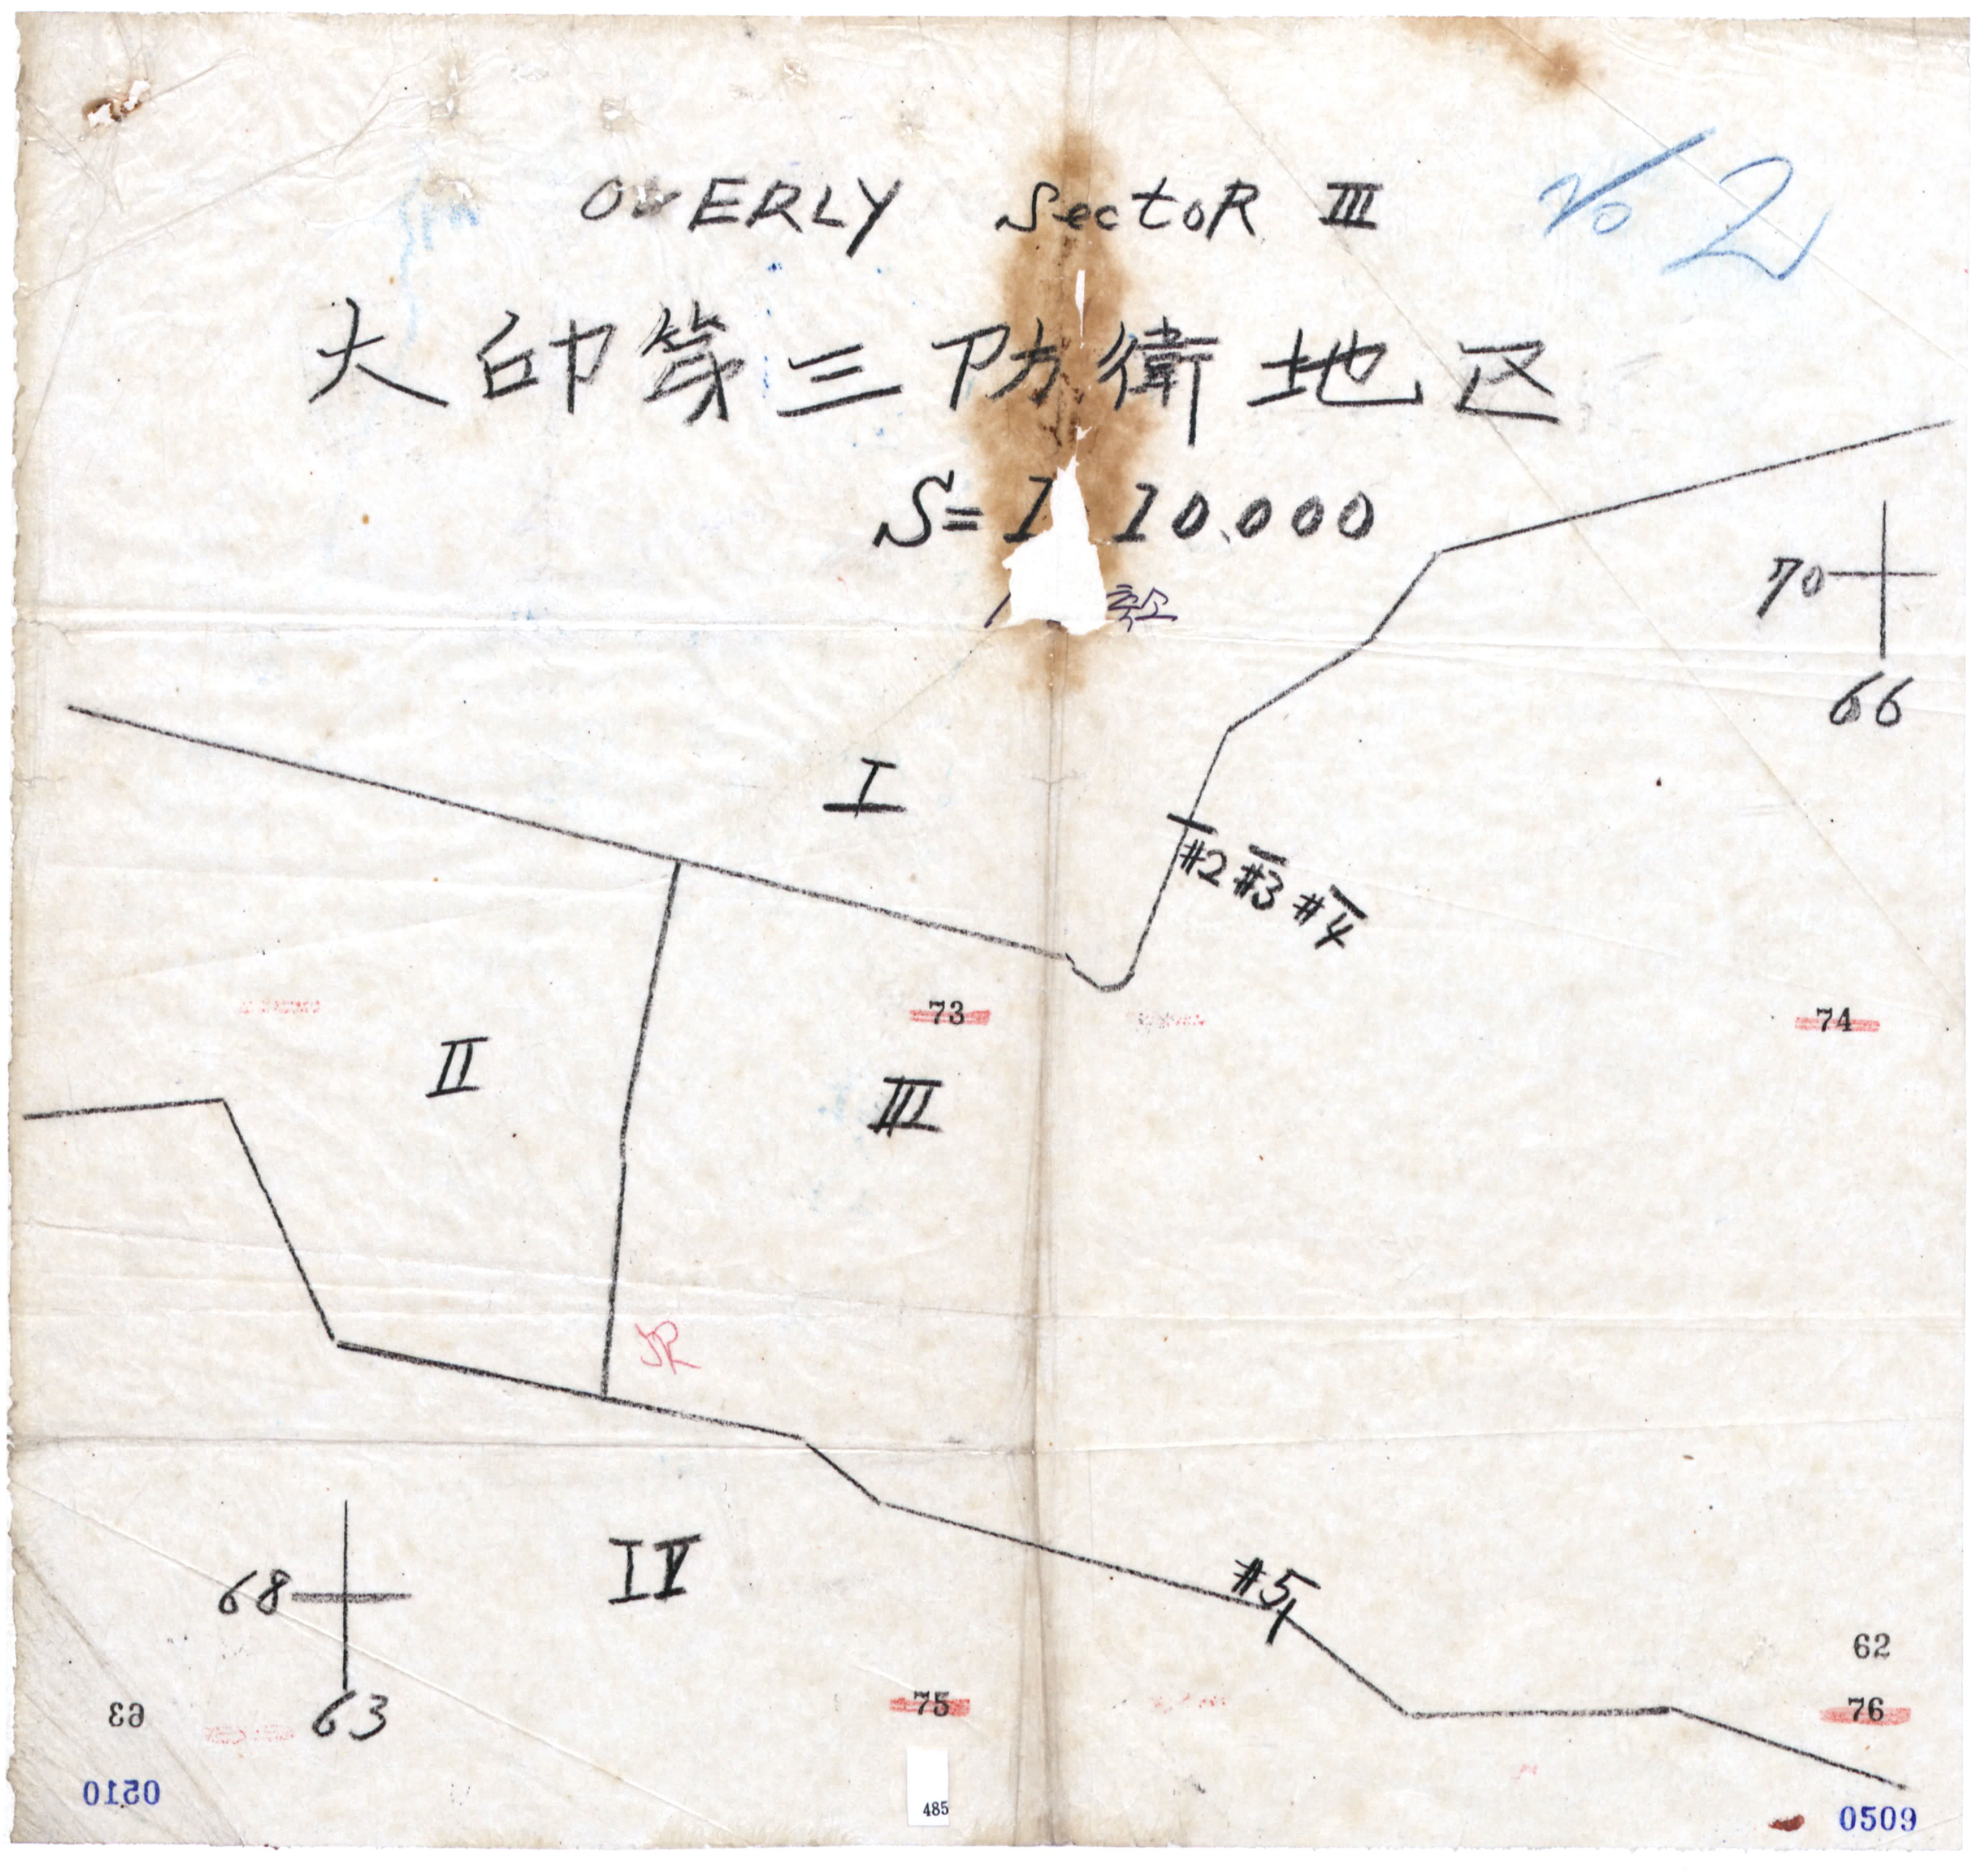 OVERLY SectoR III
No 2
大帥第三防衛地区
S=1 10,000
축소
70
66
I
#2 #3 #4
73
74
II
III
JR
68
63
IV
#5
62
63
75
76
0510
485
0509